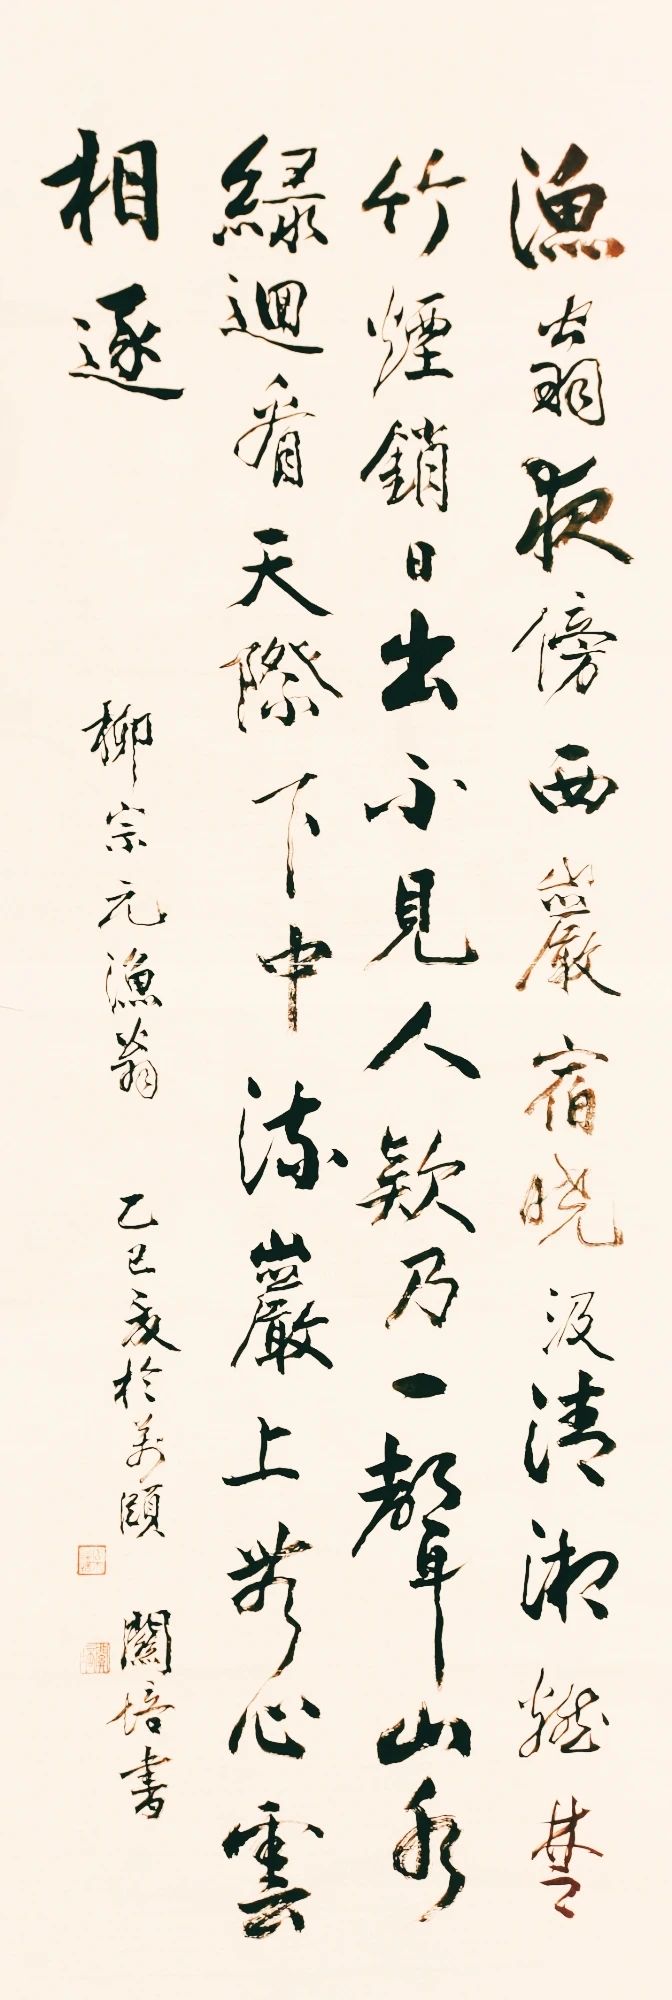 漁翁夜傍西巖宿曉汲清湘燃楚
竹煙銷日出不見人欸乃一聲山水
綠迴看天際下中流巖上無心雲
相逐
柳宗元漁翁
乙巳夏於萬頤
闞培書